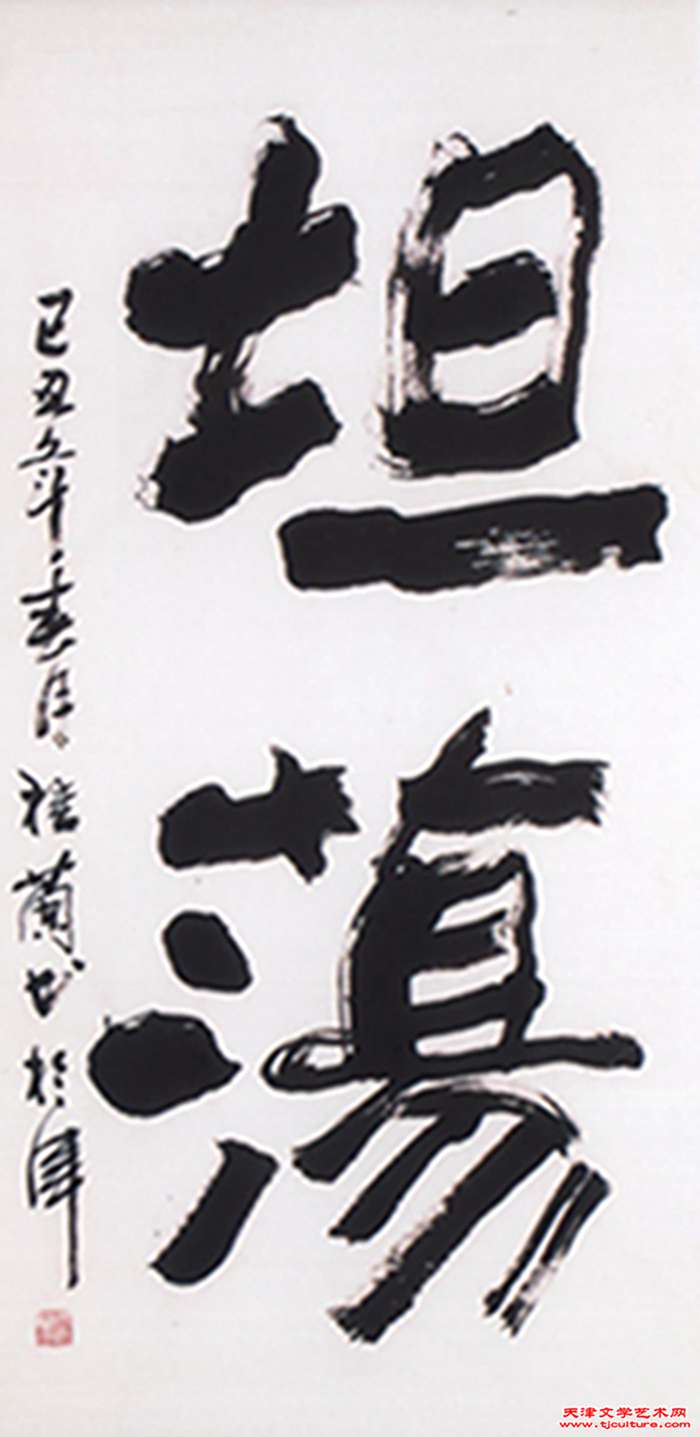 坦蕩
己丑之年春月 桂蘭書於津
天津文学艺术网
www.tjculture.com